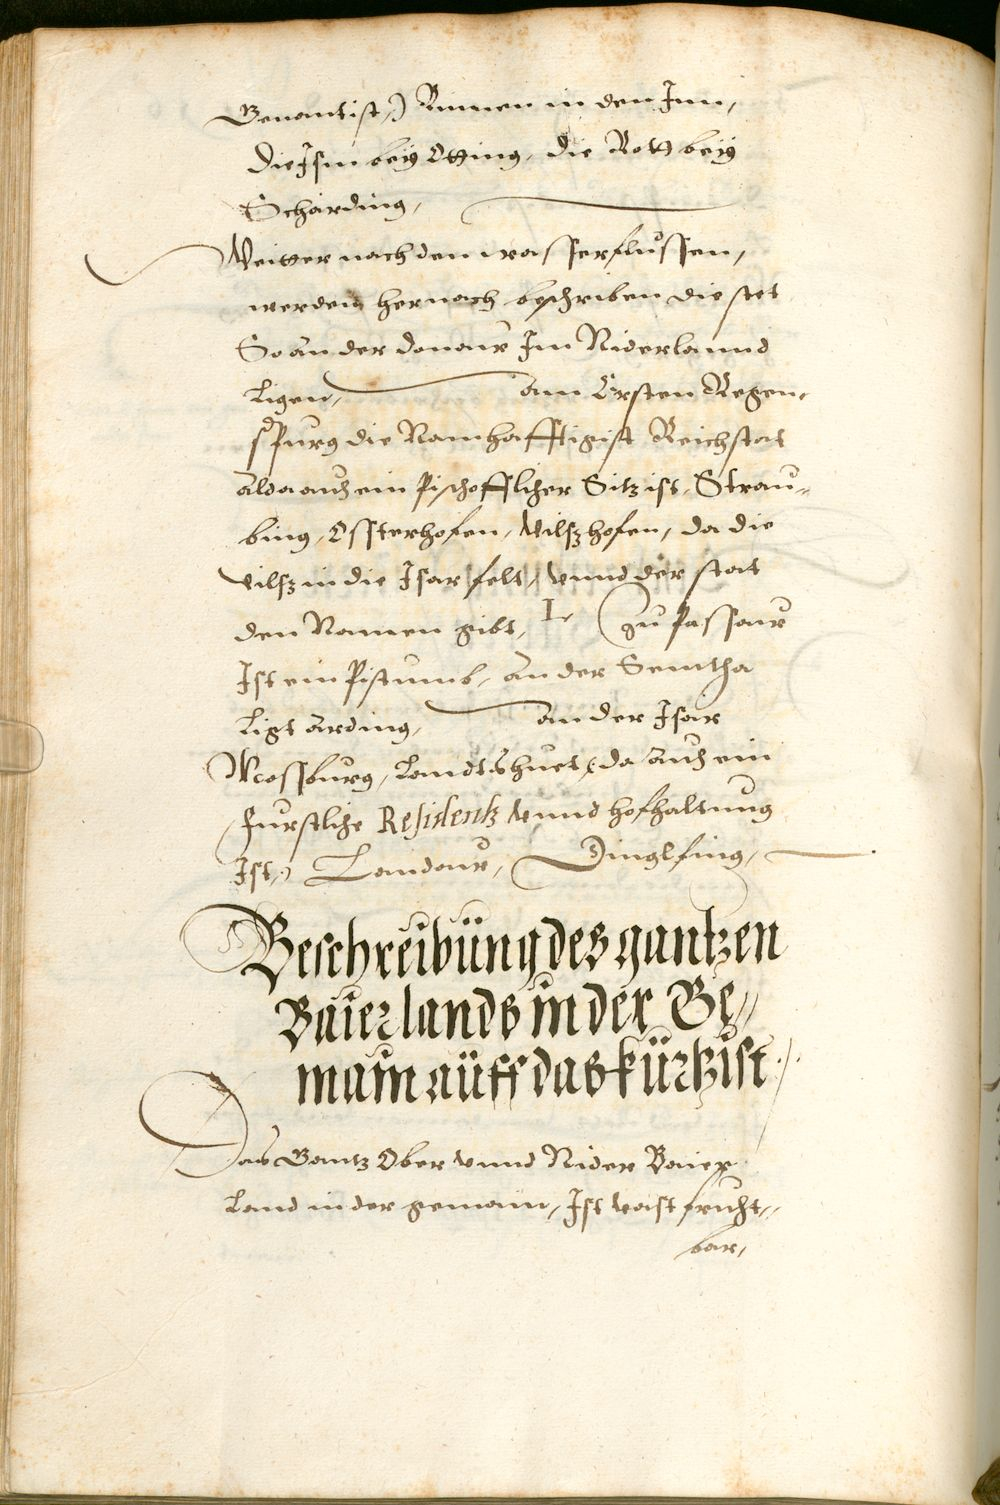 Genant ist,) Rinnen in den Inn,
die Isin beÿ Otting, die Rott beÿ
Schärding,
Weitter nach den wasserflussen,
werden hernach beschriben die stet
So an der donaur Im Niderlannd
Ligen, am Ersten Regen-
spurg die Namhafftigist Reichstat
alda auch ein Pischofflicher Sitz ist, Strau-
bing, Ossterhofen, Vilszhofen, da die
vilsz in die Isar felt, vnnd der stat
den Namen gibt, I. Zu Passaur
Ist ein Pistumb, an der Semtha
Ligt ärding, an der Isar
Mossburg, Landtshuet (da auch ein
Furstliche Residentz vnnd hofhaltung
Ist,) Landaur, Dinglfing,
Beschreibüng des gantzen
Baierlands in der Ge„
main aüff das kürtzist.
Das Gantz Ober vnnd Nider Baier
Land in der gemain, Ist vast frucht„
bar,